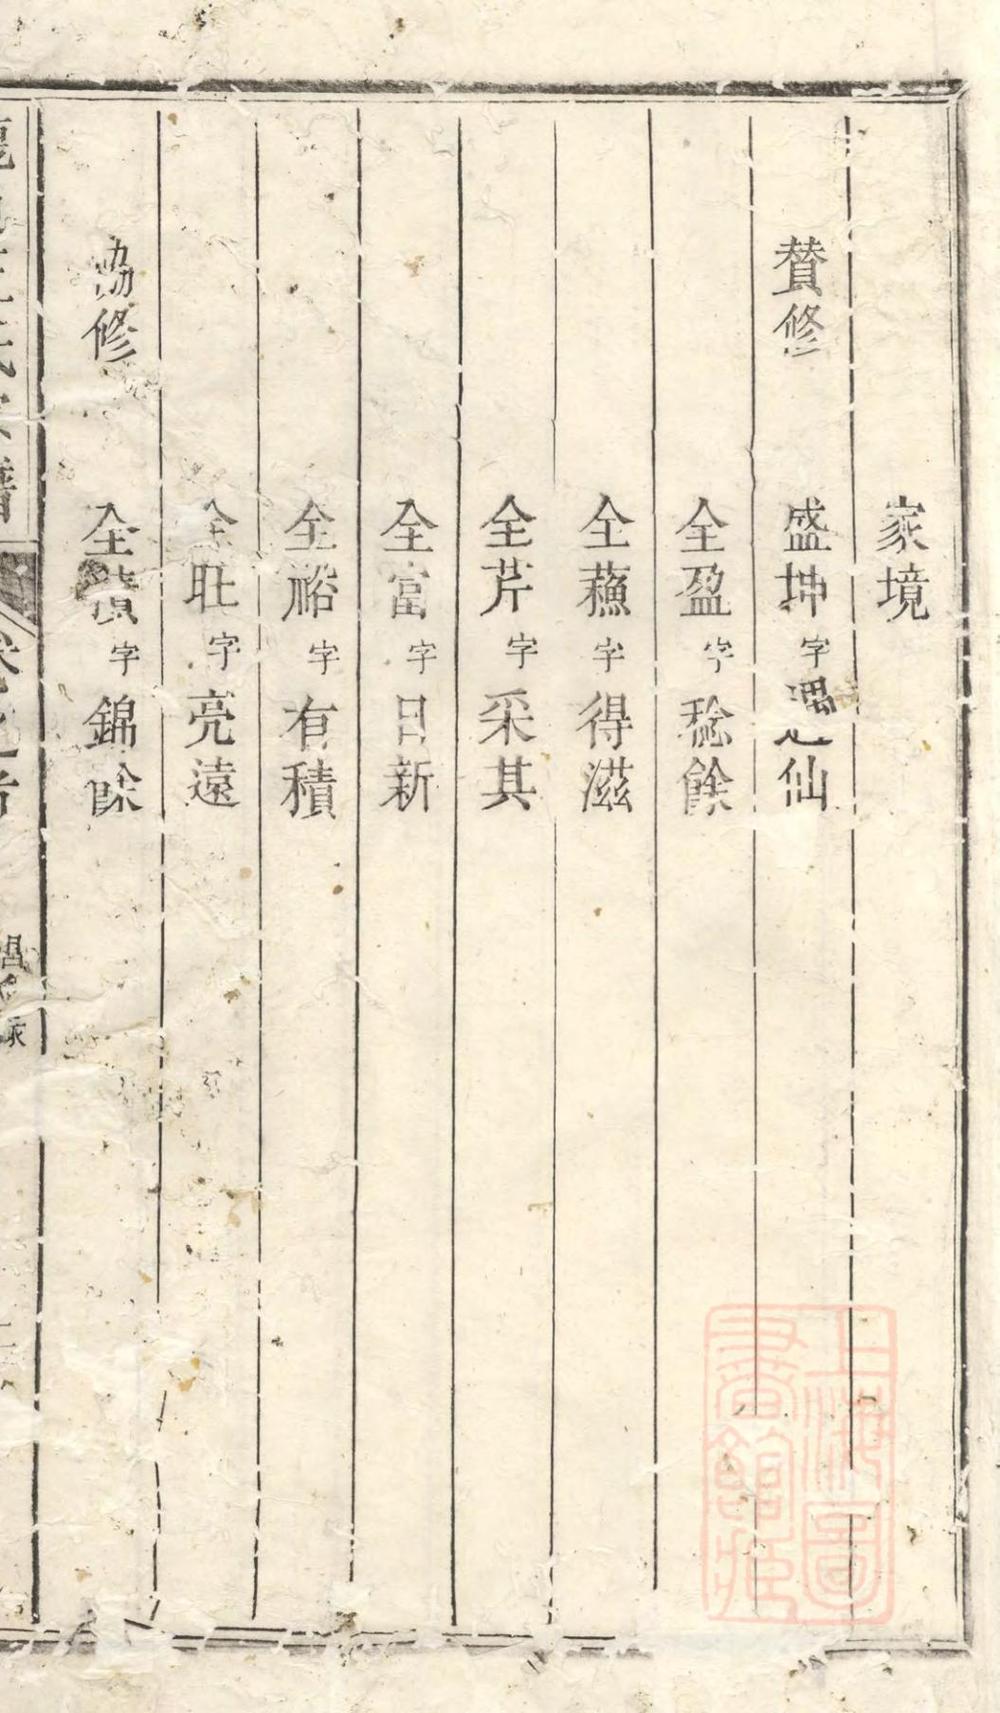 家境
賛修
盛坤字遇仙
全盈字稔餘
全蘓字得滋
全芹字采其
全富字日新
全裕字有積
全旺字亮遠
協修
全字錦餘
氏譜
上海圖書館藏